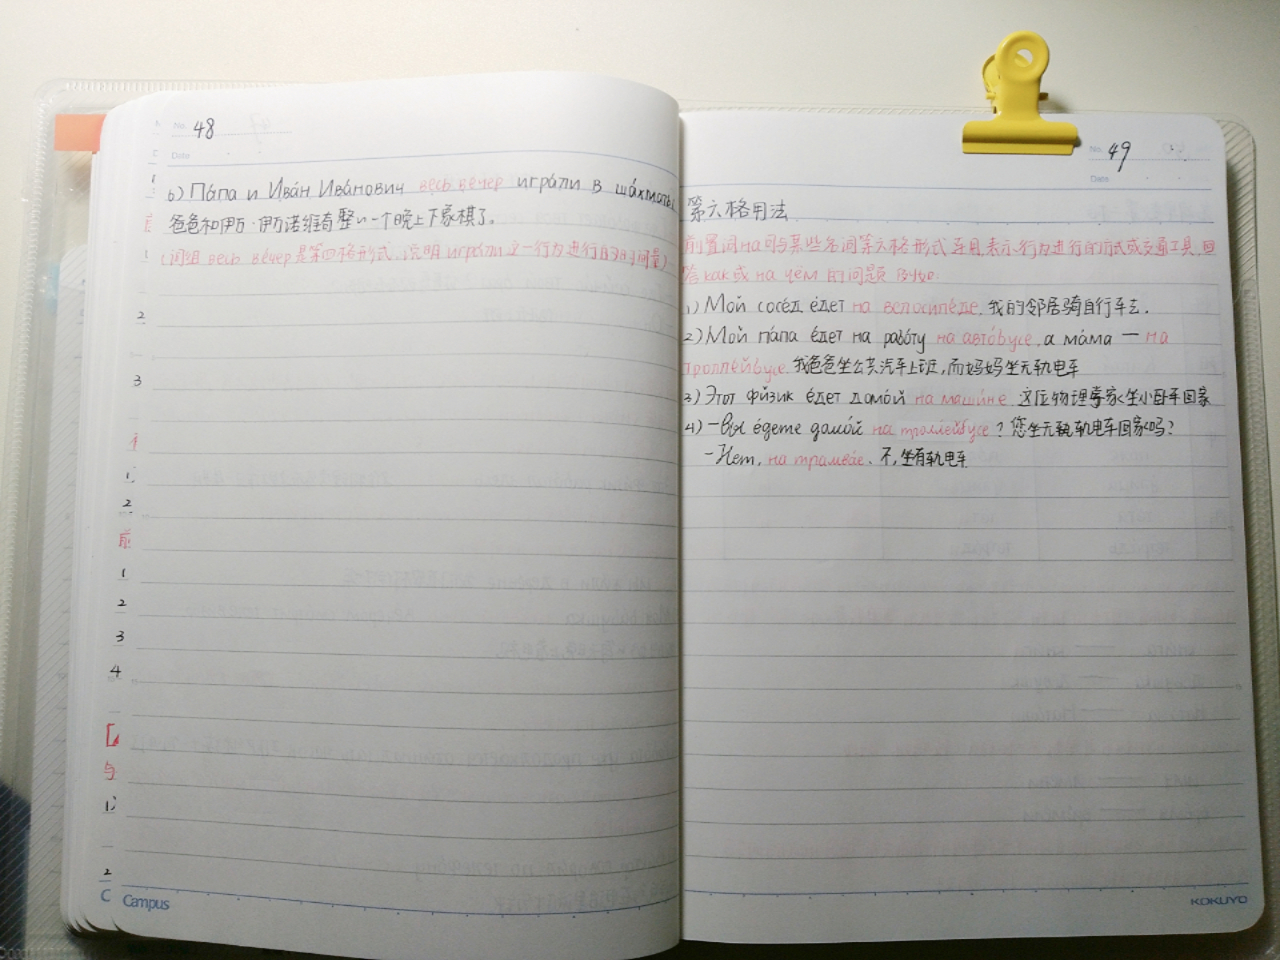 No. 48
Date
6) Па́па и Ива́н Ива́нович весь ве́чер игра́ли в ша́хматы.
爸爸和伊万·伊万诺维奇整一个晚上下象棋了。
(词组 весь ве́чер是第四格形式,说明игра́ли这一行为进行的时间量)
2
3
1
2
1
2
3
4
与
1)
2
C Campus
No. 49
Date
第六格用法
前置词на可与某些名词第六格形式连用,表示行为进行的方式或交通工具,回
答как或на чём 的问题 例如:
1) Мой сосе́д е́дет на велосипе́де. 我的邻居骑自行车去.
2) Мой па́па е́дет на рабо́ту на авто́бусе, а ма́ма — на
тролле́йбусе. 我爸爸坐公共汽车上班,而妈妈坐无轨电车
3) Э́тот фи́зик е́дет домо́й на маши́не. 这位物理学家坐小卧车回家
4) -Вы е́дете домо́й на тролле́йбусе? 您坐无轨电车回家吗?
-Нет, на трамва́е. 不,坐有轨电车
KOKUYO